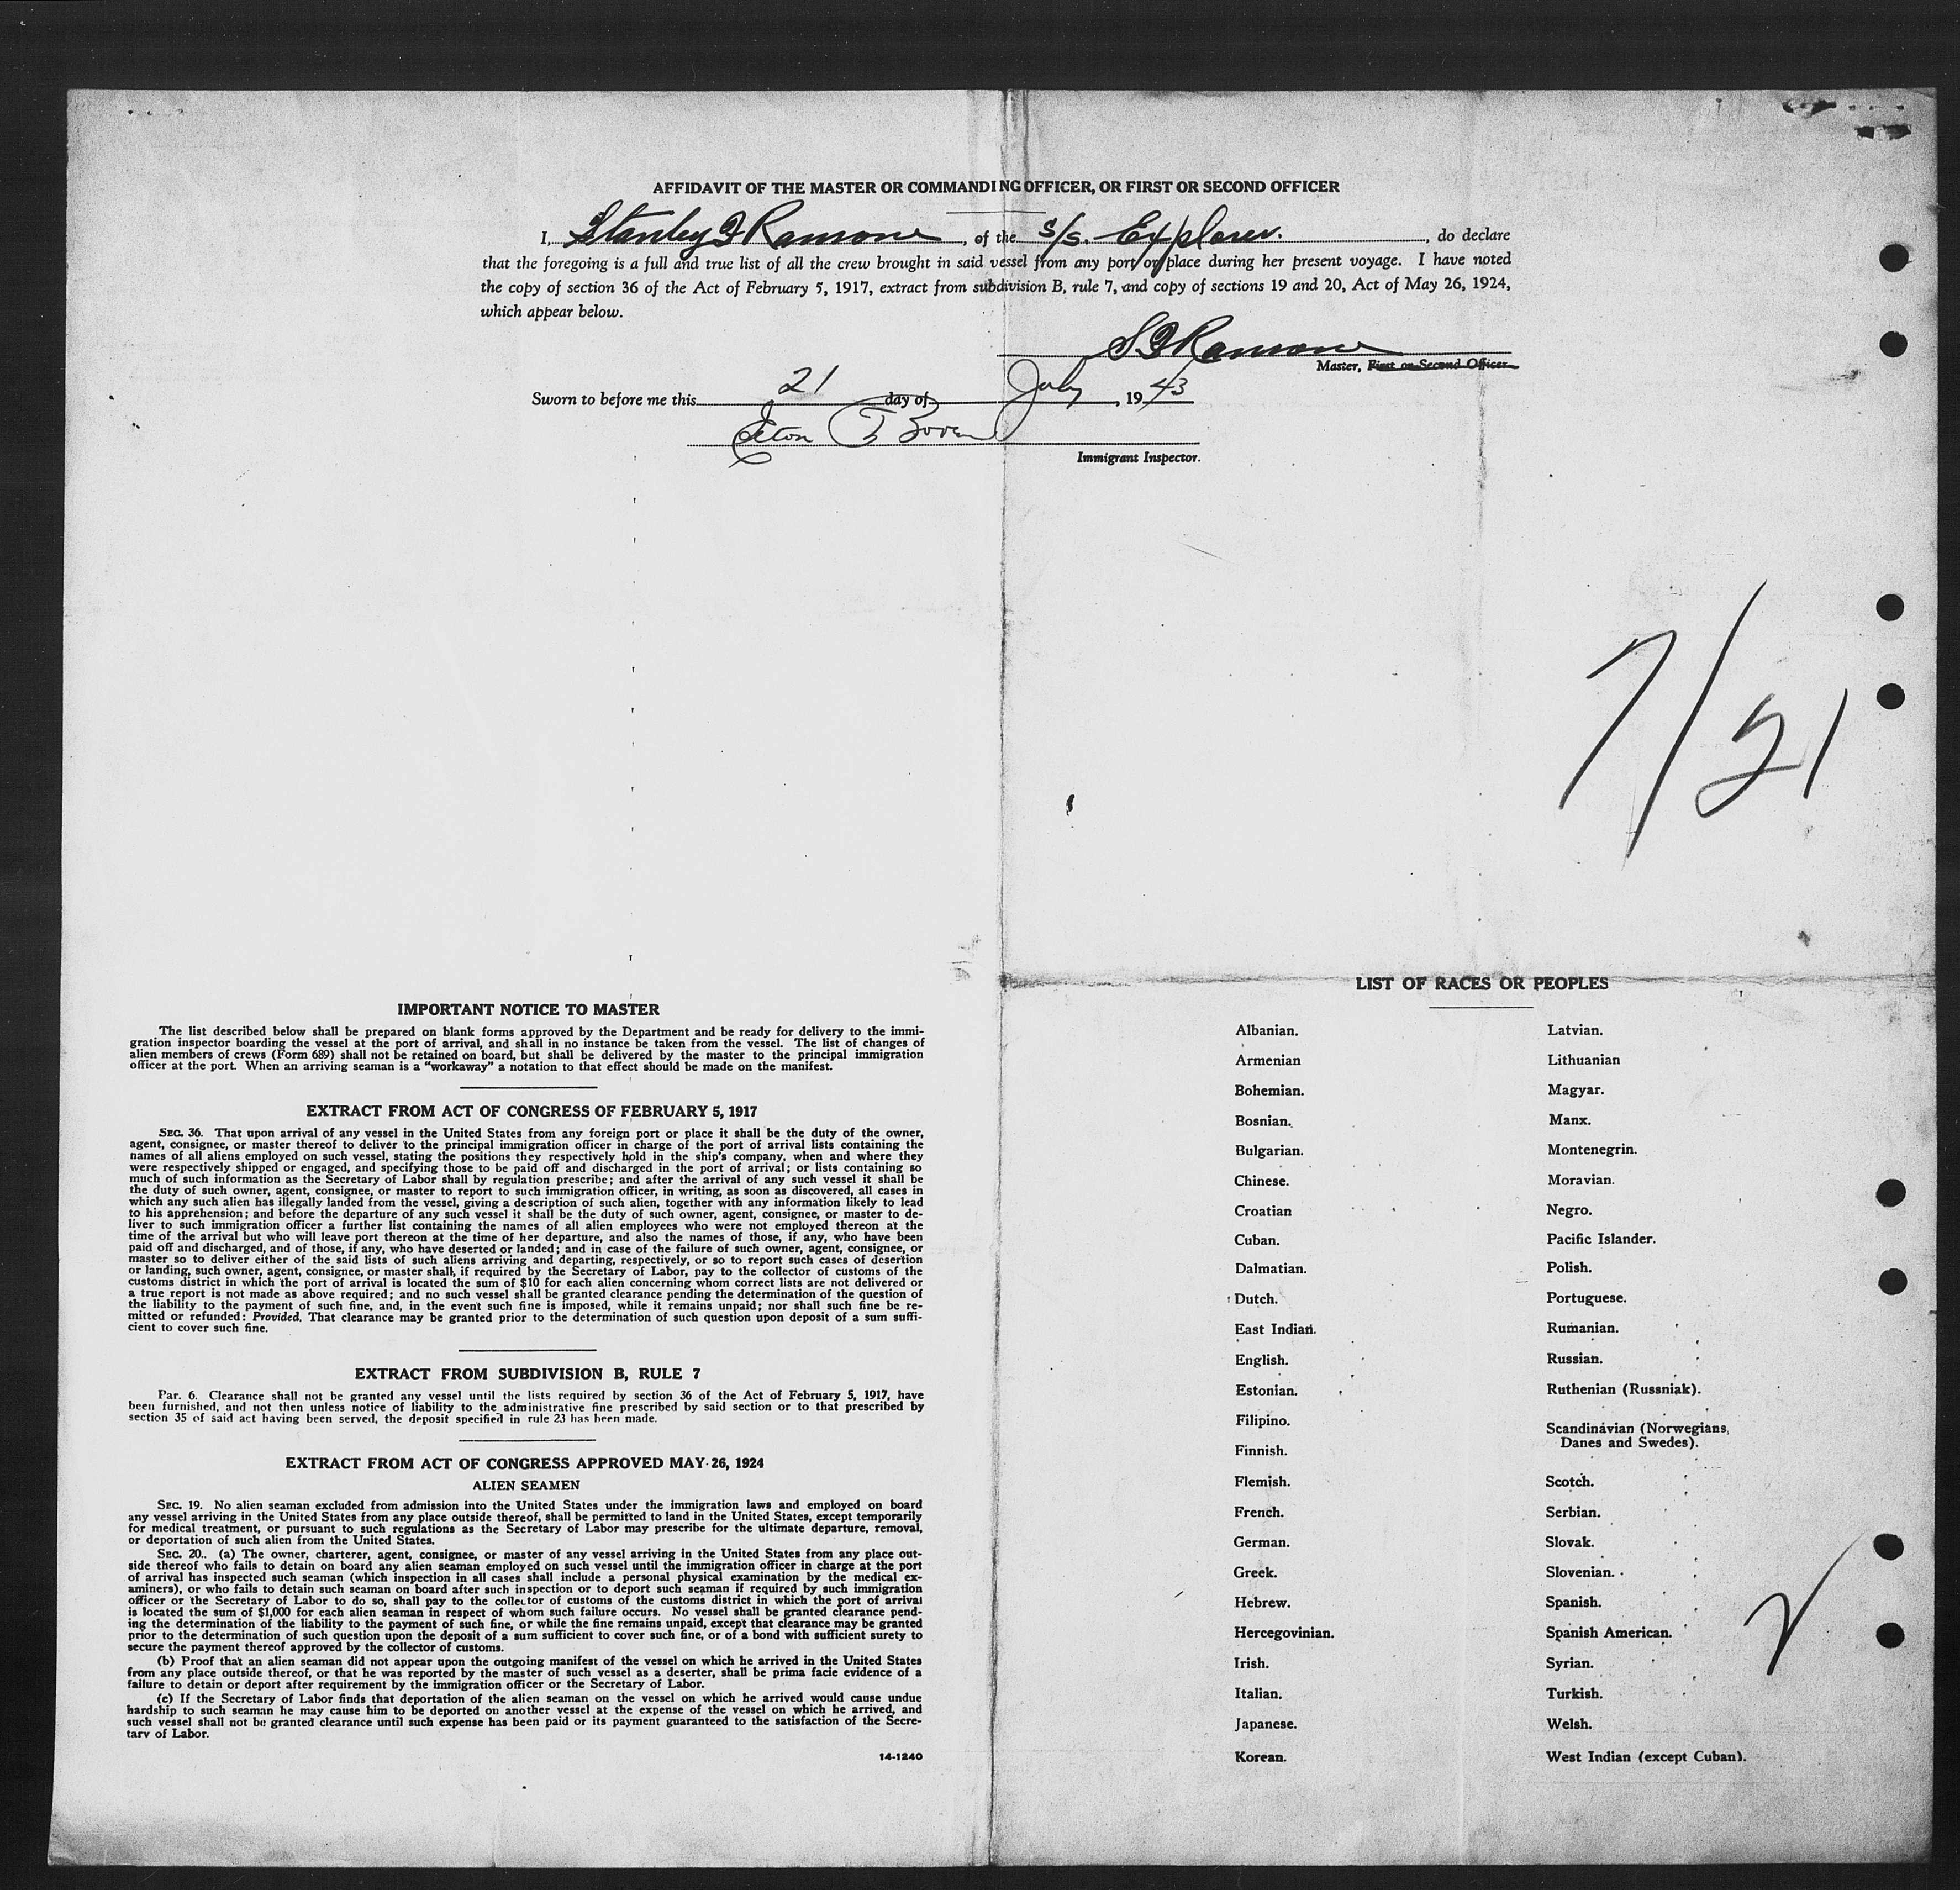 AFFIDAVIT OF THE MASTER OR COMMANDING OFFICER, OR FIRST OR SECOND OFFICER
I, Stanley Ransone, of the S/S. Explorer., do declare
that the foregoing is a full and true list of all the crew brought in said vessel from any port or place during her present voyage. I have noted
the copy of section 36 of the Act of February 5, 1917, extract from subdivision B, rule 7, and copy of sections 19 and 20, Act of May 26, 1924,
which appear below.
Ransone
Master, First or Second Officer
Sworn to before me this 21 day of July, 1943
Immigrant Inspector.
7/21
IMPORTANT NOTICE TO MASTER
The list described below shall be prepared on blank forms approved by the Department and be ready for delivery to the immi-
gration inspector boarding the vessel at the port of arrival, and shall in no instance be taken from the vessel. The list of changes of
alien members of crews (Form 689) shall not be retained on board, but shall be delivered by the master to the principal immigration
officer at the port. When an arriving seaman is a "workaway" a notation to that effect should be made on the manifest.
EXTRACT FROM ACT OF CONGRESS OF FEBRUARY 5, 1917
SEC. 36. That upon arrival of any vessel in the United States from any foreign port or place it shall be the duty of the owner,
agent, consignee, or master thereof to deliver to the principal immigration officer in charge of the port of arrival lists containing the
names of all aliens employed on such vessel, stating the positions they respectively hold in the ship's company, when and where they
were respectively shipped or engaged, and specifying those to be paid off and discharged in the port of arrival; or lists containing so
much of such information as the Secretary of Labor shall by regulation prescribe; and after the arrival of any such vessel it shall be
the duty of such owner, agent, consignee, or master to report to such immigration officer, in writing, as soon as discovered, all cases in
which any such alien has illegally landed from the vessel, giving a description of such alien, together with any information likely to lead
to his apprehension; and before the departure of any such vessel it shall be the duty of such owner, agent, consignee, or master to de-
liver to such immigration officer a further list containing the names of all alien employees who were not employed thereon at the
time of the arrival but who will leave port thereon at the time of her departure, and also the names of those, if any, who have been
paid off and discharged, and of those, if any, who have deserted or landed; and in case of the failure of such owner, agent, consignee, or
master so to deliver either of the said lists of such aliens arriving and departing, respectively, or so to report such cases of desertion
or landing, such owner, agent, consignee, or master shall, if required by the Secretary of Labor, pay to the collector of customs of the
customs district in which the port of arrival is located the sum of $10 for each alien concerning whom correct lists are not delivered or
a true report is not made as above required; and no such vessel shall be granted clearance pending the determination of the question of
the liability to the payment of such fine, and, in the event such fine is imposed, while it remains unpaid; nor shall such fine be re-
mitted or refunded: Provided, That clearance may be granted prior to the determination of such question upon deposit of a sum suffi-
cient to cover such fine.
EXTRACT FROM SUBDIVISION B, RULE 7
Par. 6. Clearance shall not be granted any vessel until the lists required by section 36 of the Act of February 5, 1917, have
been furnished, and not then unless notice of liability to the administrative fine prescribed by said section or to that prescribed by
section 35 of said act having been served, the deposit specified in rule 23 has been made.
EXTRACT FROM ACT OF CONGRESS APPROVED MAY 26, 1924
ALIEN SEAMEN
SEC. 19. No alien seaman excluded from admission into the United States under the immigration laws and employed on board
any vessel arriving in the United States from any place outside thereof, shall be permitted to land in the United States, except temporarily
for medical treatment, or pursuant to such regulations as the Secretary of Labor may prescribe for the ultimate departure, removal,
or deportation of such alien from the United States.
SEC. 20.. (a) The owner, charterer, agent, consignee, or master of any vessel arriving in the United States from any place out-
side thereof who fails to detain on board any alien seaman employed on such vessel until the immigration officer in charge at the port
of arrival has inspected such seaman (which inspection in all cases shall include a personal physical examination by the medical ex-
aminers), or who fails to detain such seaman on board after such inspection or to deport such seaman if required by such immigration
officer or the Secretary of Labor to do so, shall pay to the collector of customs of the customs district in which the port of arrival
is located the sum of $1,000 for each alien seaman in respect of whom such failure occurs. No vessel shall be granted clearance pend-
ing the determination of the liability to the payment of such fine, or while the fine remains unpaid, except that clearance may be granted
prior to the determination of such question upon the deposit of a sum sufficient to cover such fine, or of a bond with sufficient surety to
secure the payment thereof approved by the collector of customs.
(b) Proof that an alien seaman did not appear upon the outgoing manifest of the vessel on which he arrived in the United States
from any place outside thereof, or that he was reported by the master of such vessel as a deserter, shall be prima facie evidence of a
failure to detain or deport after requirement by the immigration officer or the Secretary of Labor.
(c) If the Secretary of Labor finds that deportation of the alien seaman on the vessel on which he arrived would cause undue
hardship to such seaman he may cause him to be deported on another vessel at the expense of the vessel on which he arrived, and
such vessel shall not be granted clearance until such expense has been paid or its payment guaranteed to the satisfaction of the Secre-
tary of Labor.
14-1240
LIST OF RACES OR PEOPLES
Albanian.
Armenian
Bohemian.
Bosnian.
Bulgarian.
Chinese.
Croatian
Cuban.
Dalmatian.
Dutch.
East Indian.
English.
Estonian.
Filipino.
Finnish.
Flemish.
French.
German.
Greek.
Hebrew.
Hercegovinian.
Irish.
Italian.
Japanese.
Korean.
Latvian.
Lithuanian
Magyar.
Manx.
Montenegrin.
Moravian.
Negro.
Pacific Islander.
Polish.
Portuguese.
Rumanian.
Russian.
Ruthenian (Russniak).
Scandinavian (Norwegians,
Danes and Swedes).
Scotch.
Serbian.
Slovak.
Slovenian.
Spanish.
Spanish American.
Syrian.
Turkish.
Welsh.
West Indian (except Cuban).